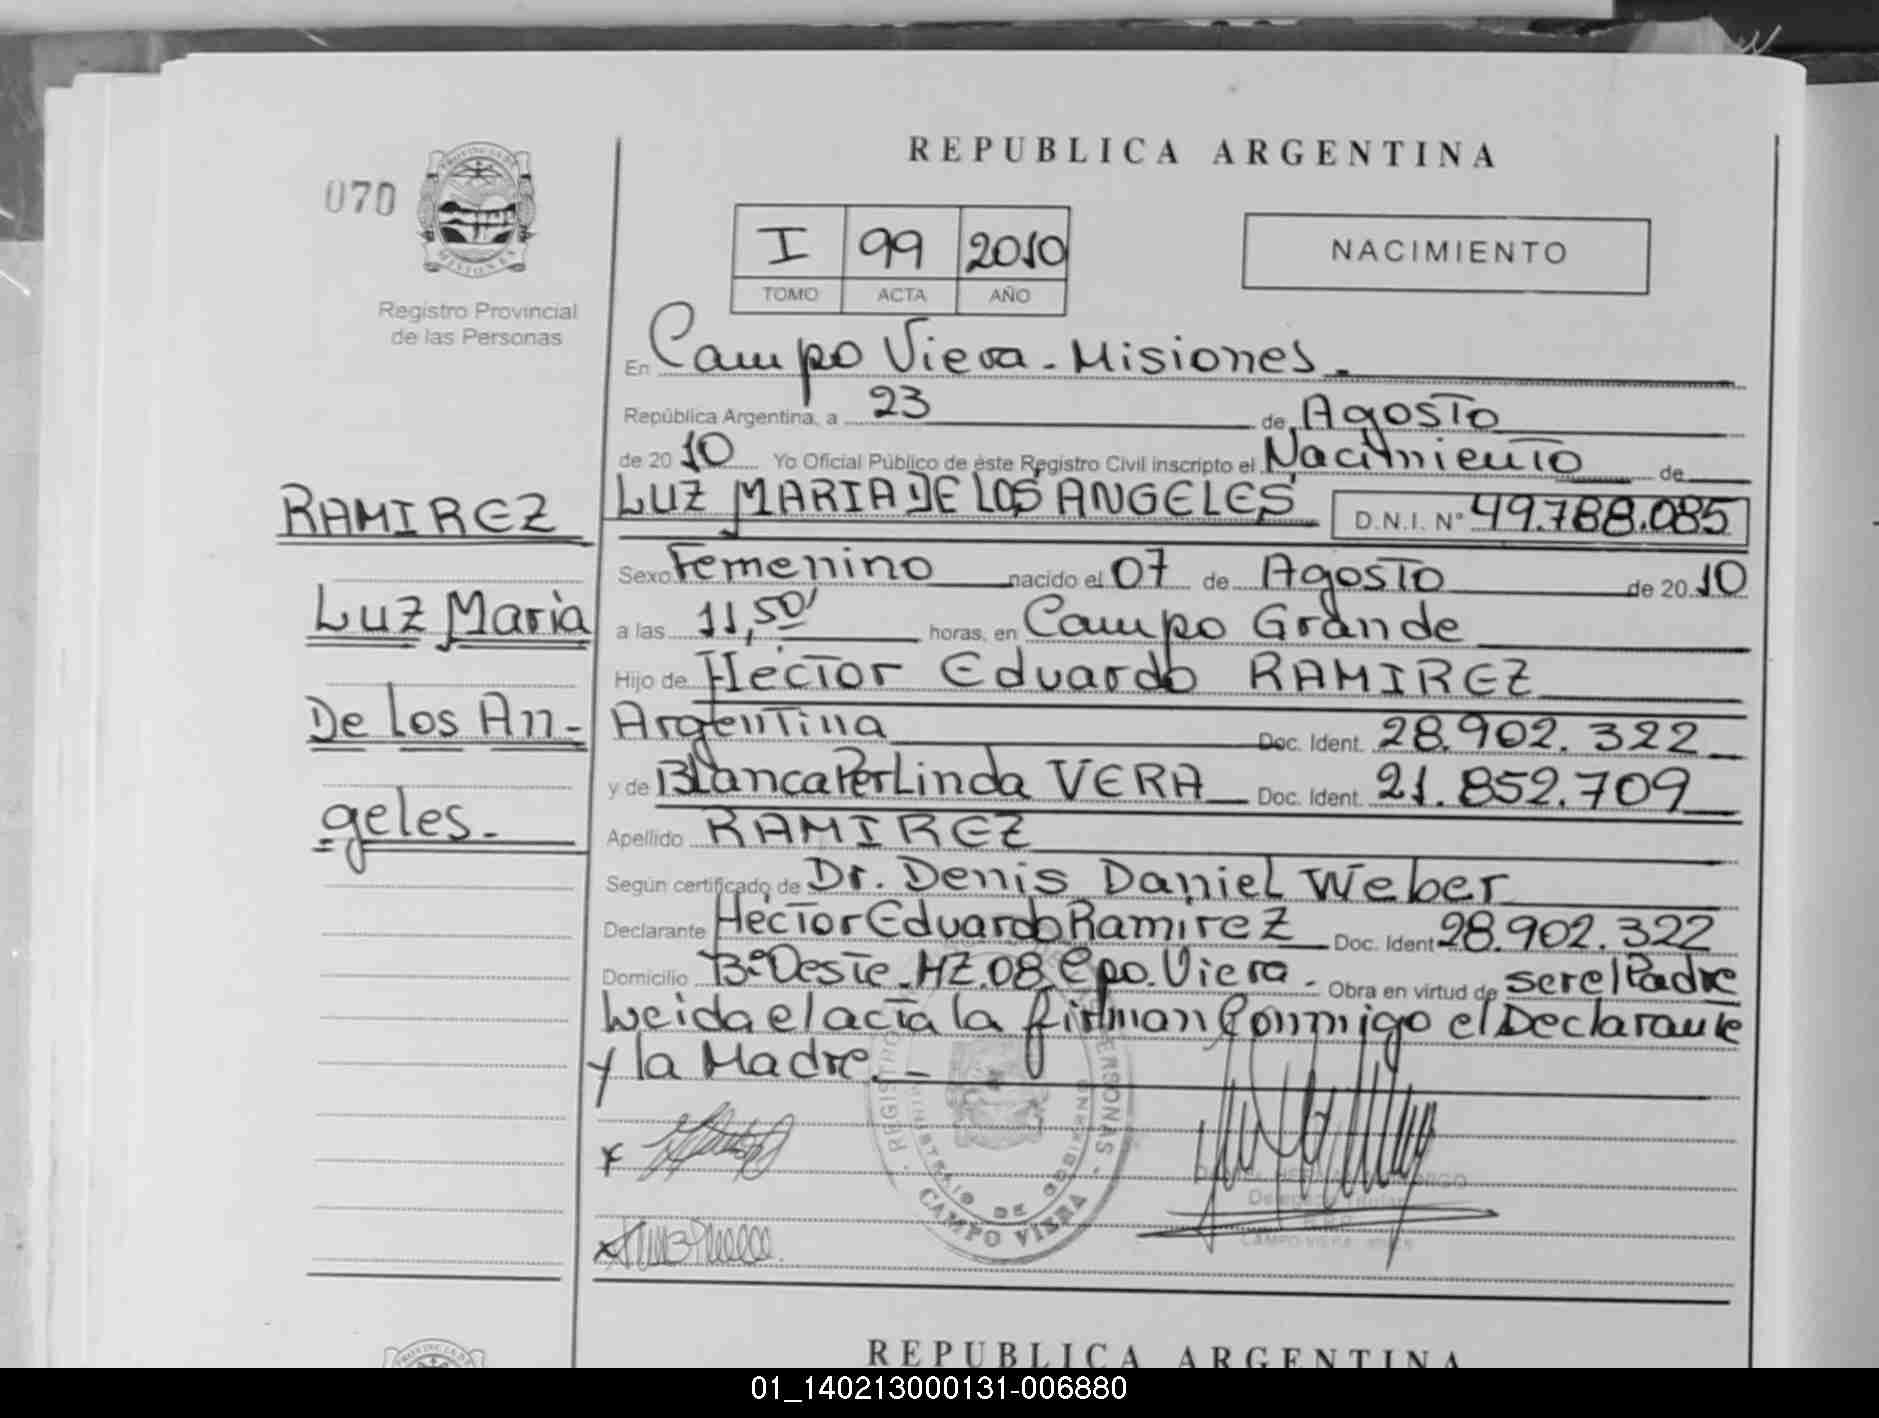 REPUBLICA ARGENTINA
070
PROVINCIA DE
MISIONES
Registro Provincial
de las Personas
I 99 2010
TOMO ACTA AÑO
NACIMIENTO
En Campo Viera - Misiones.
República Argentina, a 23 de Agosto
de 2010 Yo Oficial Público de éste Registro Civil inscripto el Nacimiento de
LUZ MARIA DE LOS ANGELES D.N.I. N° 49.788.085
RAMIREZ
Luz Maria
De los An-
geles.
Sexo Femenino nacido el 07 de Agosto de 2010
a las 11,50' horas, en Campo Grande
Hijo de Héctor Eduardo RAMIREZ
Argentina Doc. Ident. 28.902.322
y de Blanca Perlinda VERA Doc. Ident. 21.852.709
Apellido RAMIREZ
Según certificado de Dr. Denis Daniel Weber
Declarante Hector Eduardo Ramirez Doc. Ident 28.902.322
Domicilio B° Oeste. MZ. 08. Cpo. Viera. Obra en virtud de ser el Padre
Leida el acta la firman Conmigo el Declarante
y la Madre.
REGISTRO PERSONAS
MINISTERIO DE GOBIERNO
CAMPO VIERA
Titular
CAMPO VIERA
REPUBLICA ARGENTINA
01_140213000131-006880